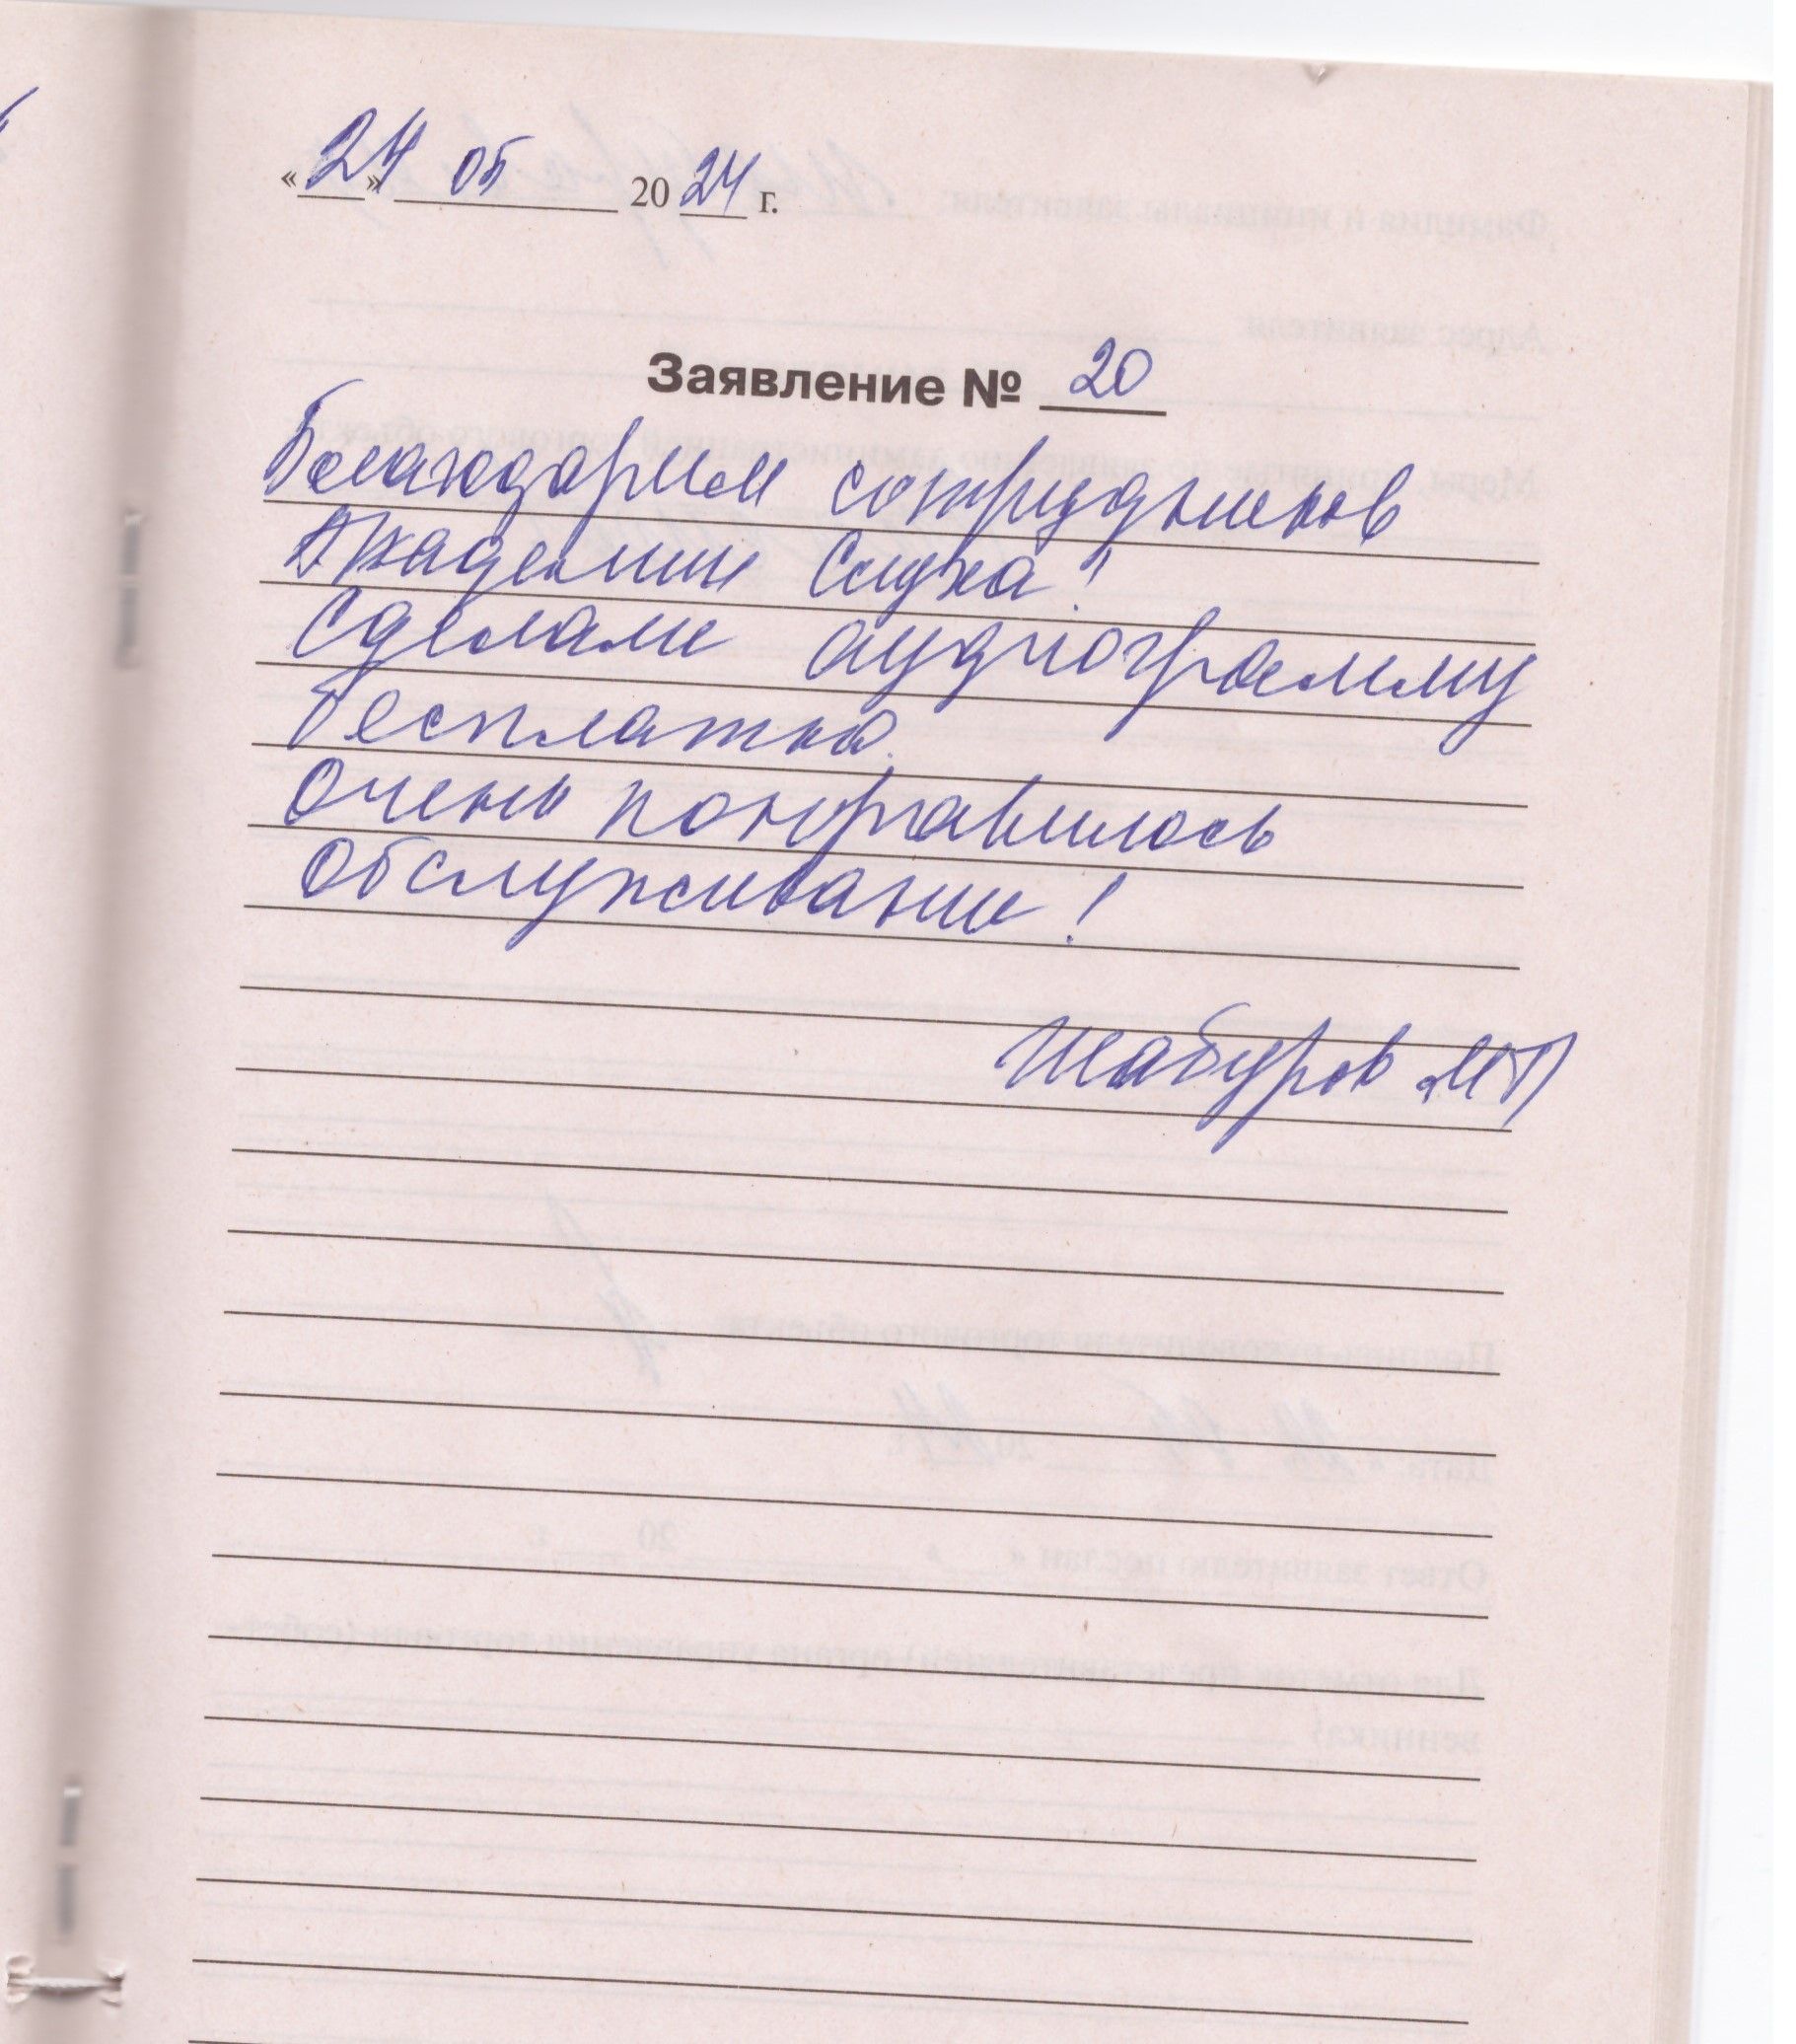 «24» 05 2024 г.
Заявление № 20
Благодарим сотрудников
Академии Слуха!
Сделали аудиограмму
бесплатно.
Очень понравилось
обслуживание!
Шабуров МП